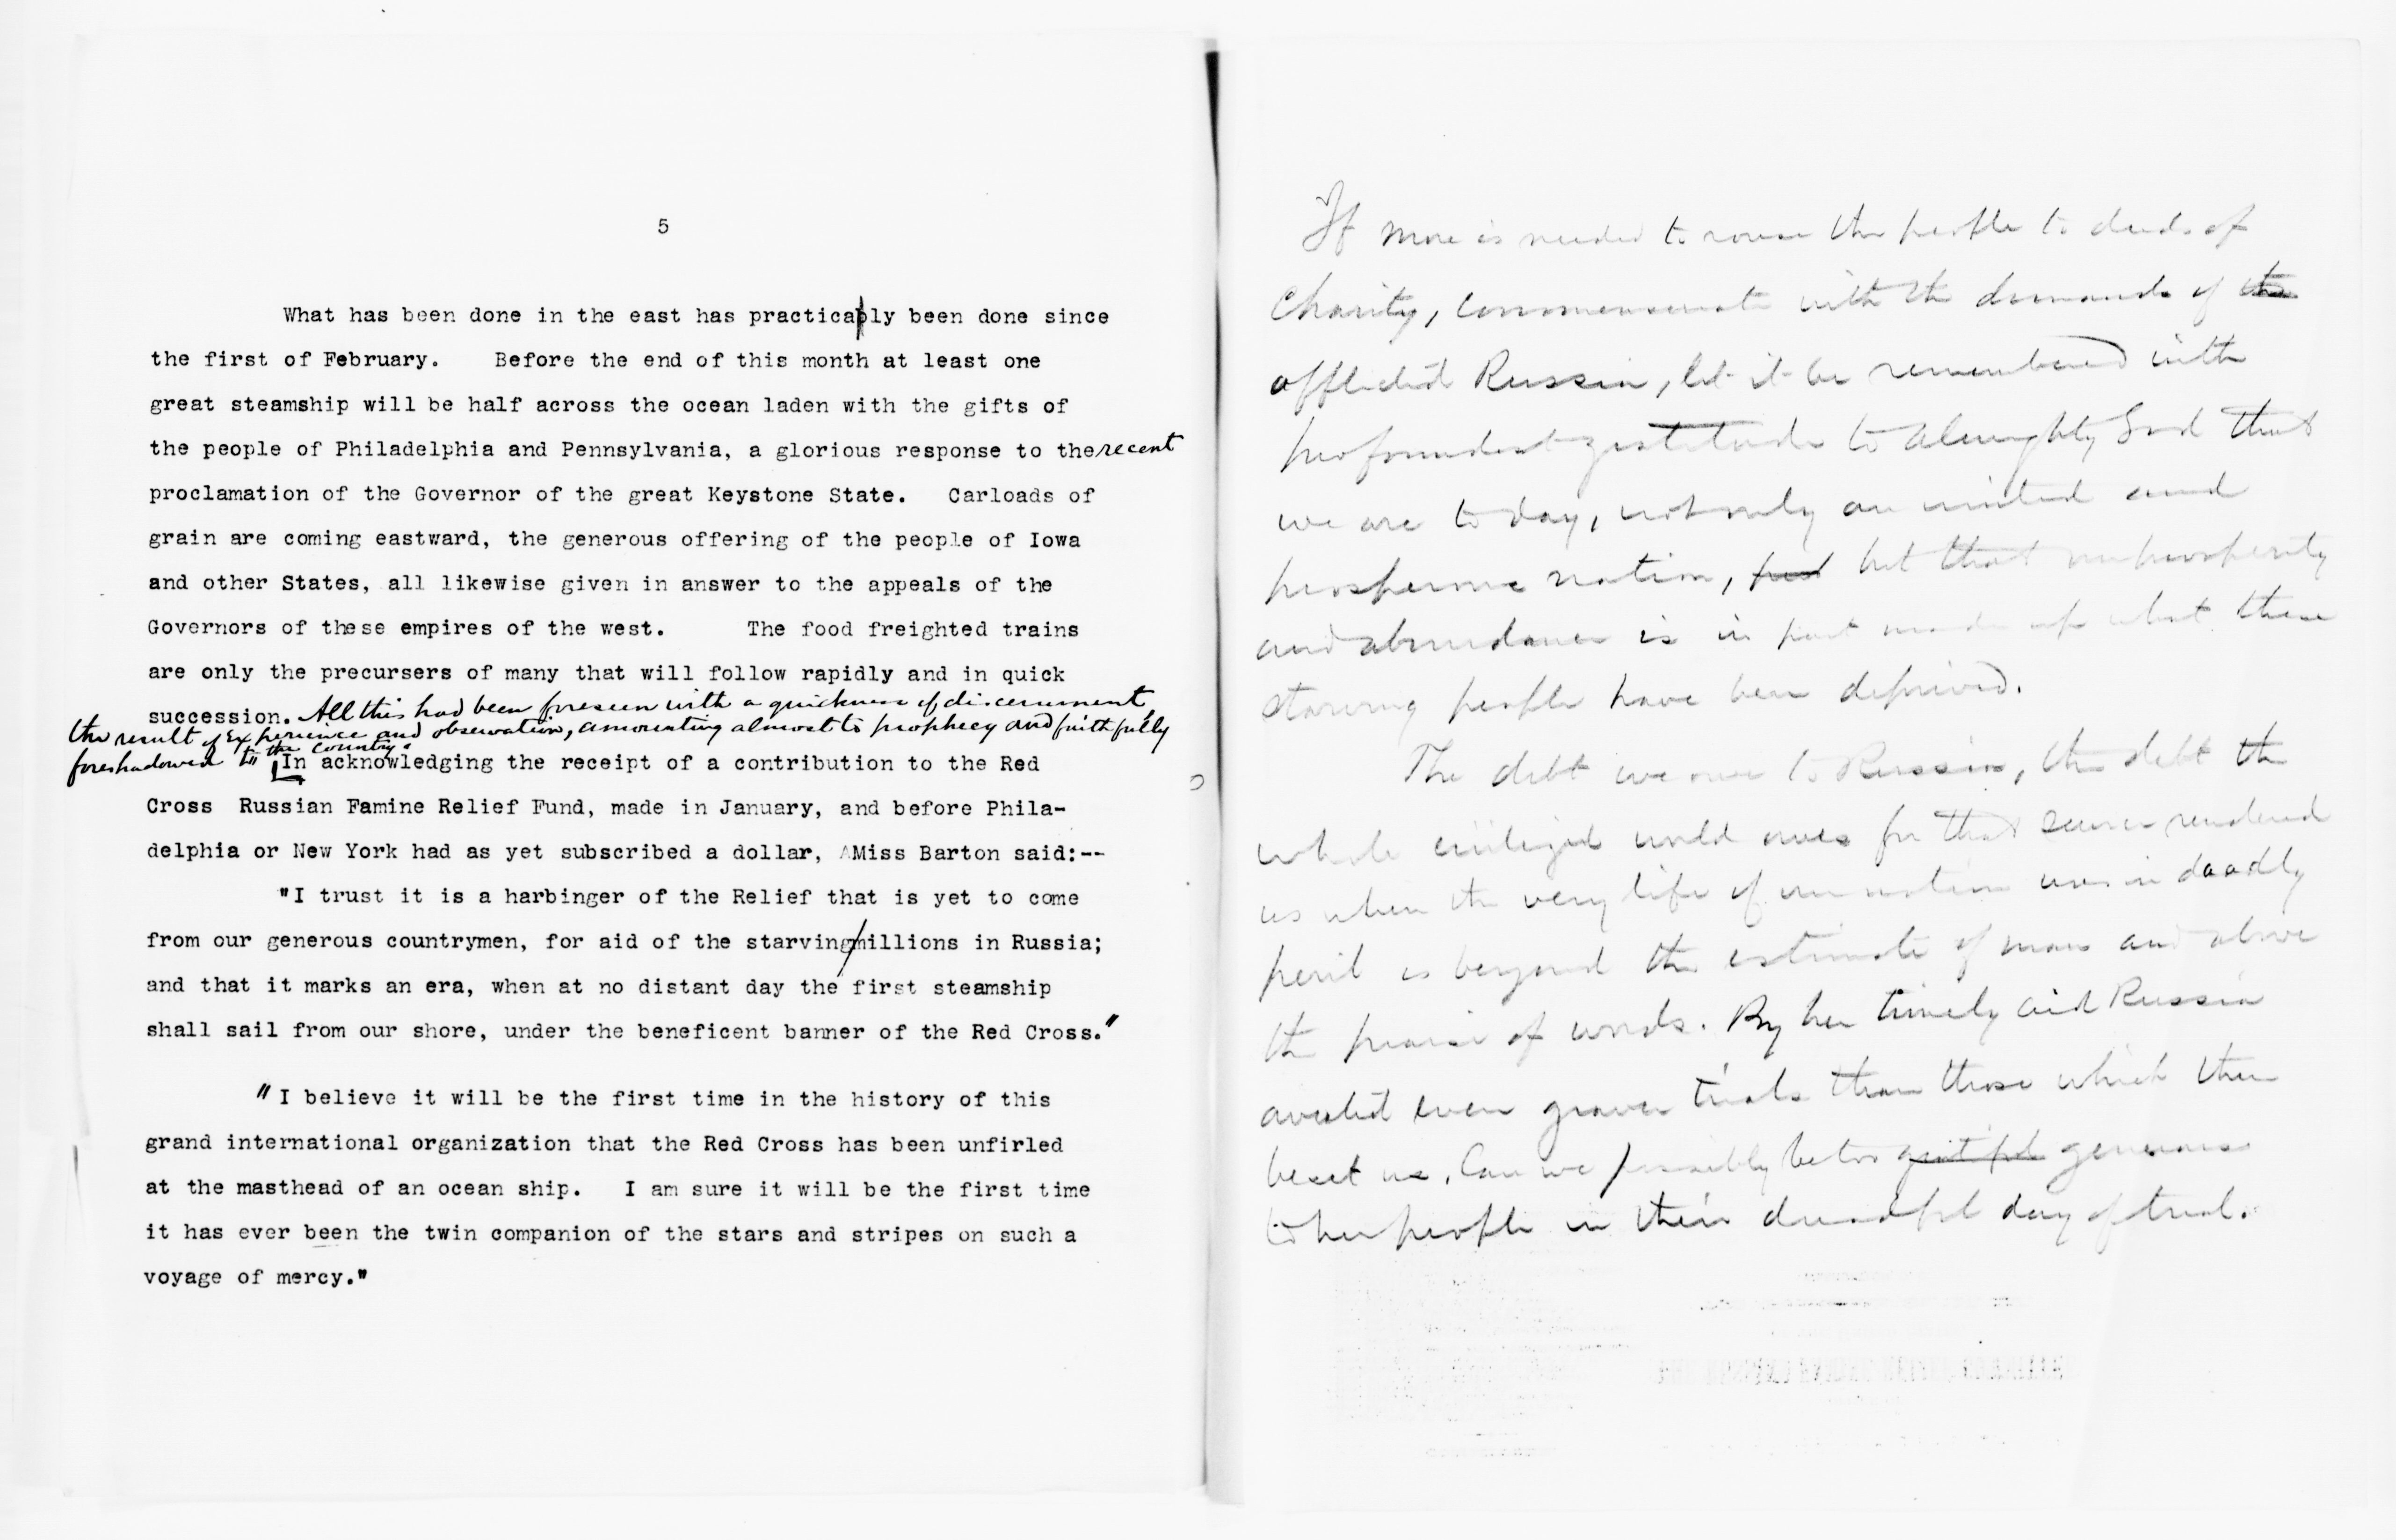 5
What has been done in the east has practicably been done since
the first of February. Before the end of this month at least one
great steamship will be half across the ocean laden with the gifts of
the people of Philadelphia and Pennsylvania, a glorious response to the recent
proclamation of the Governor of the great Keystone State. Carloads of
grain are coming eastward, the generous offering of the people of Iowa
and other States, all likewise given in answer to the appeals of the
Governors of these empires of the west. The food freighted trains
are only the precursers of many that will follow rapidly and in quick
succession. All this had been foreseen with a quickness of discernment,
the result of Experience and observation, amounting almost to prophecy and faithfully
foreshadowed to the country.
In acknowledging the receipt of a contribution to the Red
Cross Russian Famine Relief Fund, made in January, and before Phila-
delphia or New York had as yet subscribed a dollar, Miss Barton said:--
"I trust it is a harbinger of the Relief that is yet to come
from our generous countrymen, for aid of the starving/millions in Russia;
and that it marks an era, when at no distant day the first steamship
shall sail from our shore, under the beneficent banner of the Red Cross."
"I believe it will be the first time in the history of this
grand international organization that the Red Cross has been unfirled
at the masthead of an ocean ship. I am sure it will be the first time
it has ever been the twin companion of the stars and stripes on such a
voyage of mercy."
If more is needed to rouse the people to deeds of
Charity, commensurate with the demands of the
afflicted Russia, let it be remembered with
profoundest gratitude to Almighty God that
we are to day, not only an united and
prosperous nation, but that our prosperity
and abundance is in part made up what these
starving people have been deprived.
The debt we owe to Russia, the debt the
whole civilized world owes for that service rendered
us when the very life of our nation was in deadly
peril is beyond the estimate of man and above
the praise of words. By her timely aid Russia
averted even graver trials than those which then
beset us. Can we possibly be too grateful generous
to her people in their dreadful day of trial.